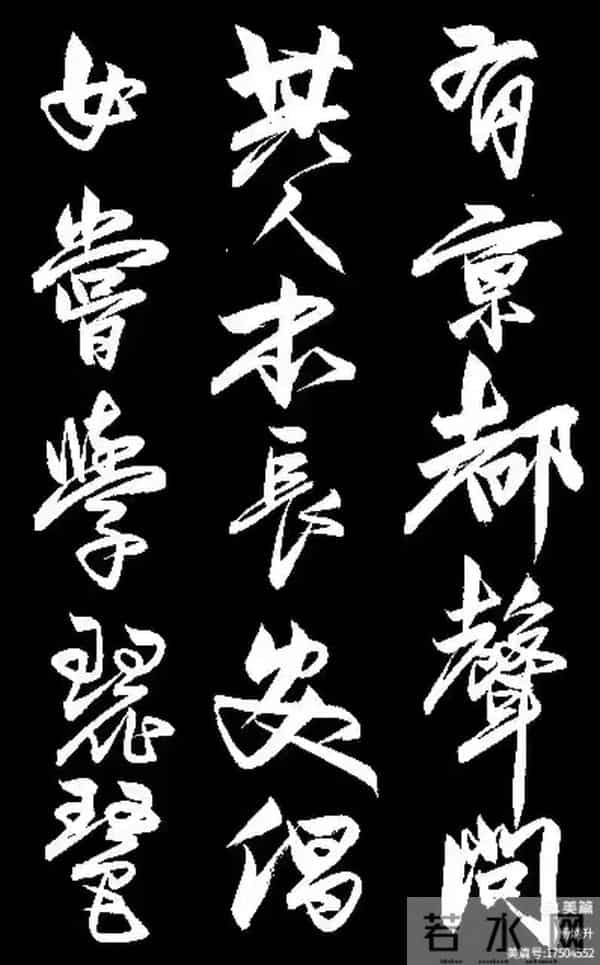 有京都聲問
其人本長安倡
女嘗學琵琶
美篇
若水网
美篇号:17504552